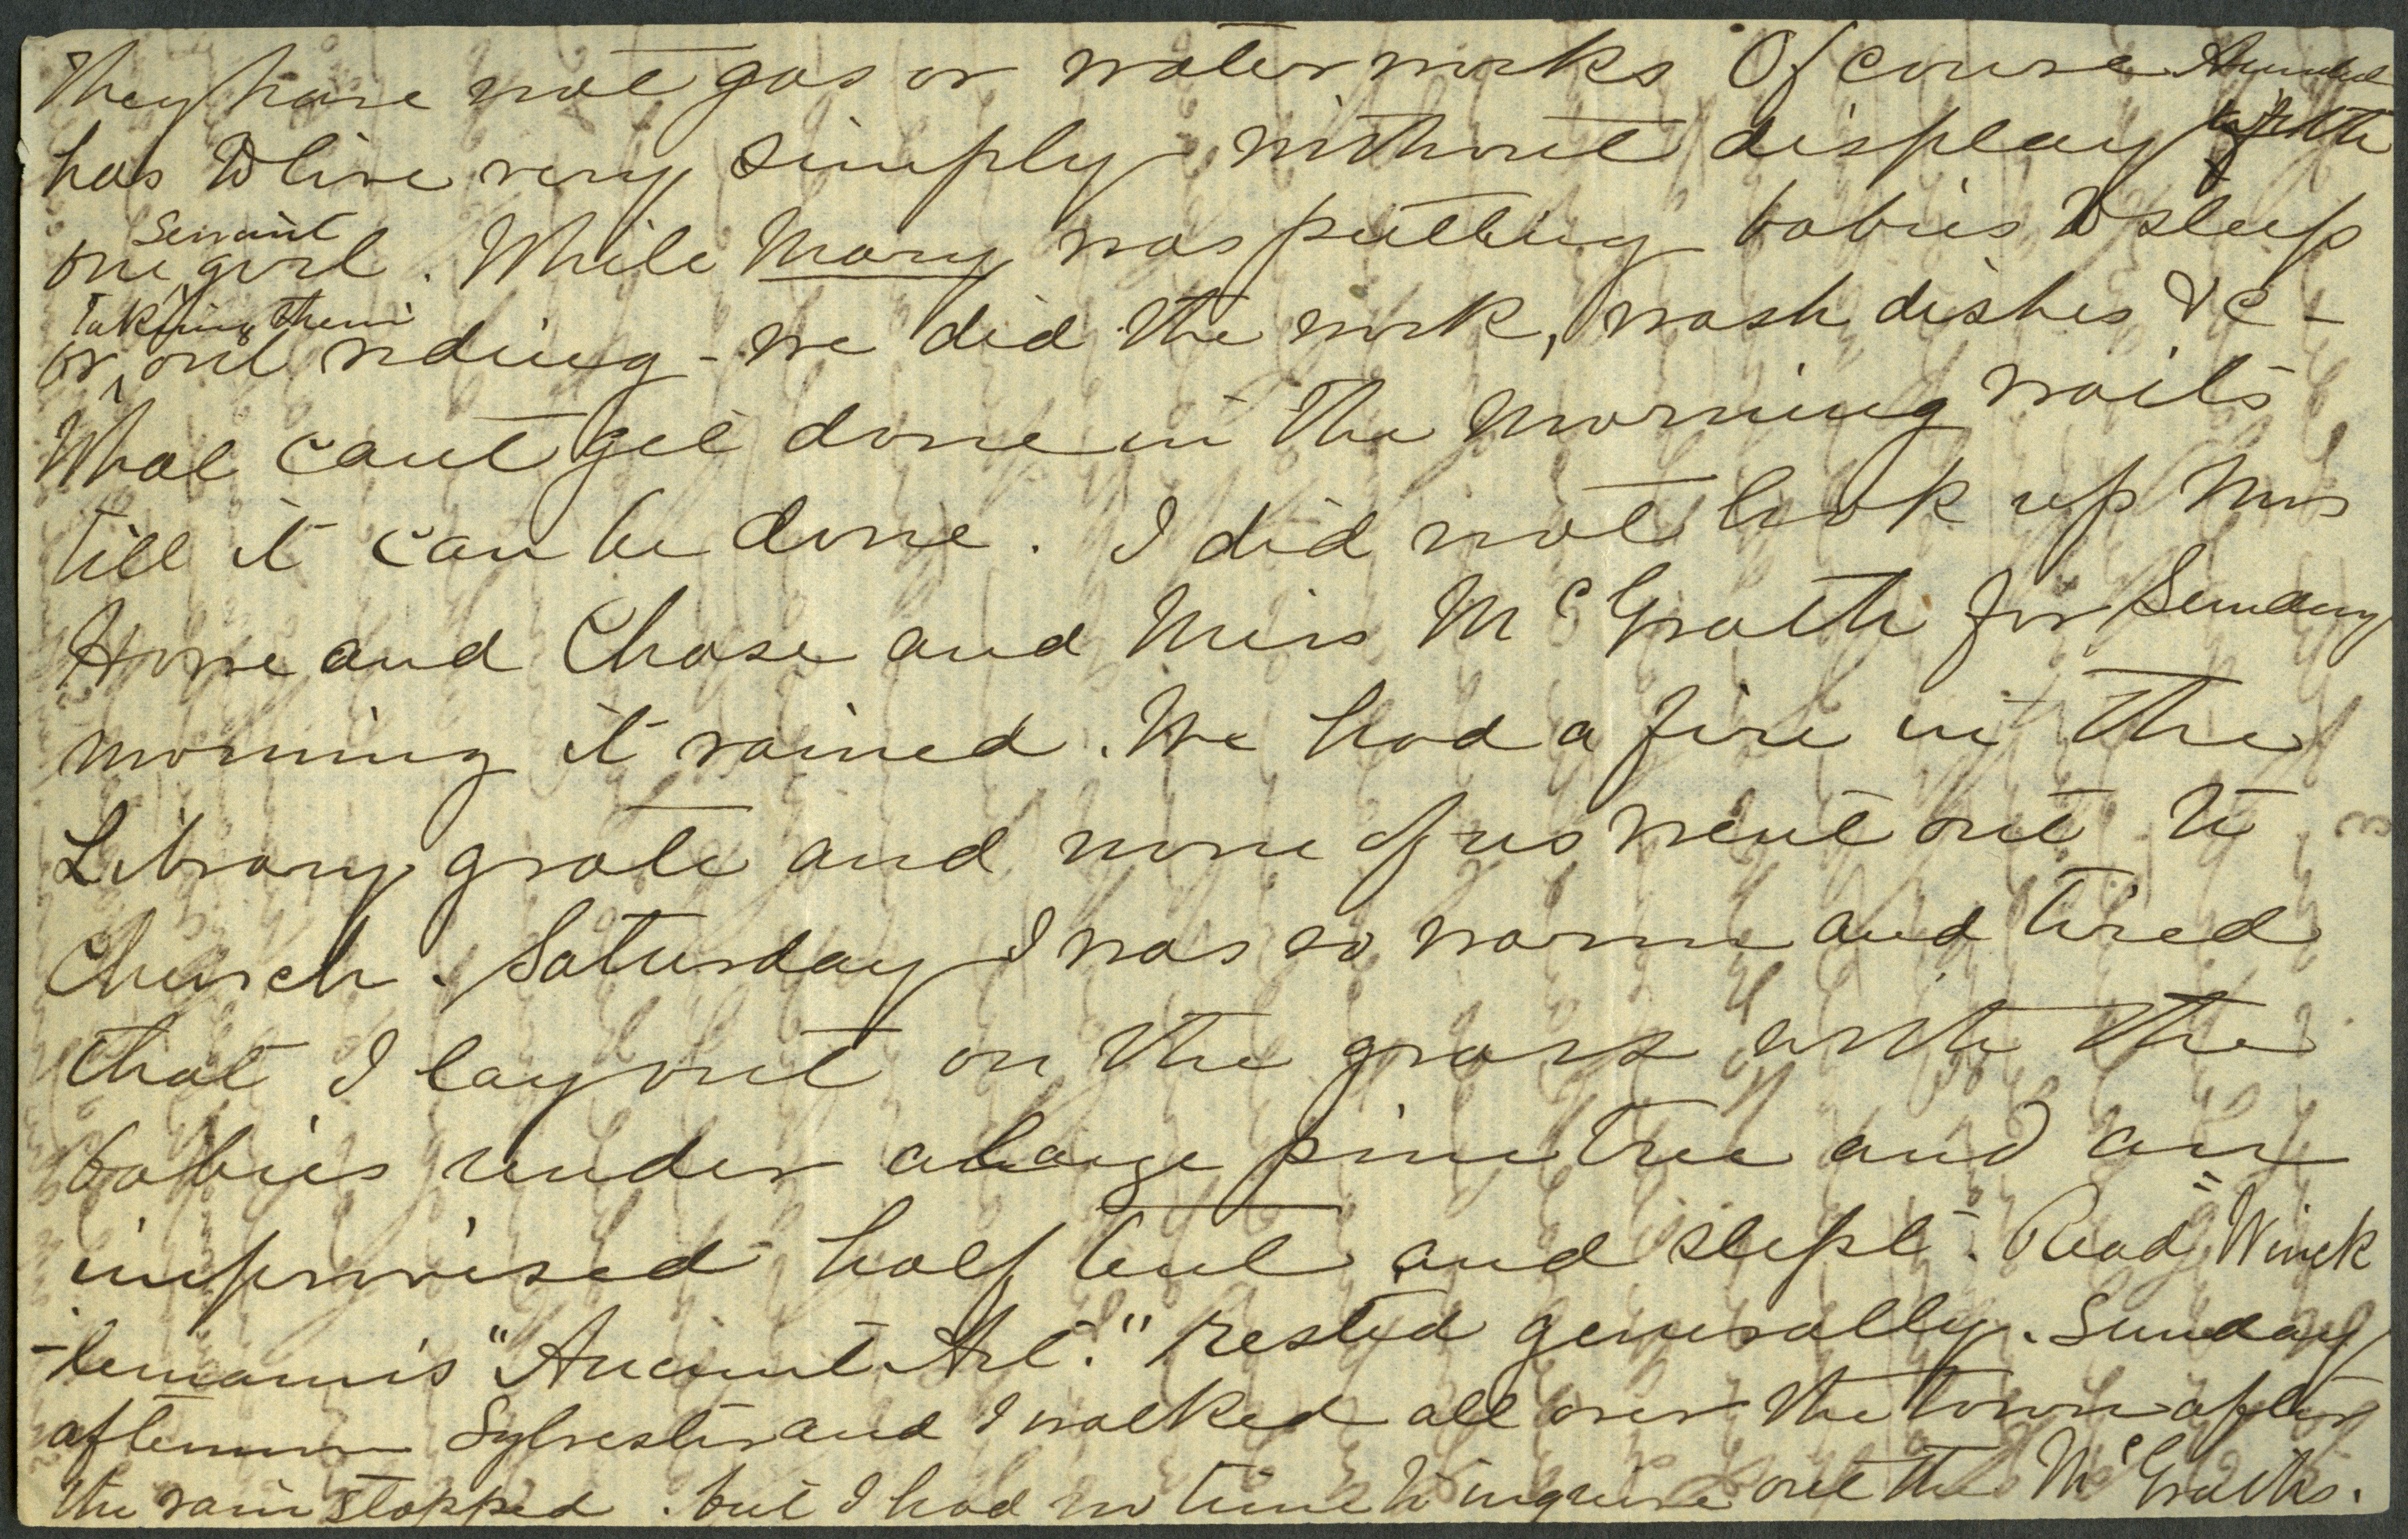 They have not gas or water works Of course
has to live very simply without display with
one servant girl. While Mary was putting babies to sleep
or taking them out riding - we did the work, wash dishes &c -
What cant get done in the morning waits
till it can be done. I did not look up Mrs
Howe and Chase and Miss McGrath for Sunday
morning it rained. We had a fire in the
Library grate and none of us went out to
Church. Saturday I was so warm and tired
that I lay out on the grass with the
babies under a large pine tree and an
improvised half tent and slept. Read "Winck
-lemann's "Ancient Art." Rested generally. Sunday
afternoon Sylvester and I walked all over the town after
the rain stopped. but I had no time to inquire out the McGraths.